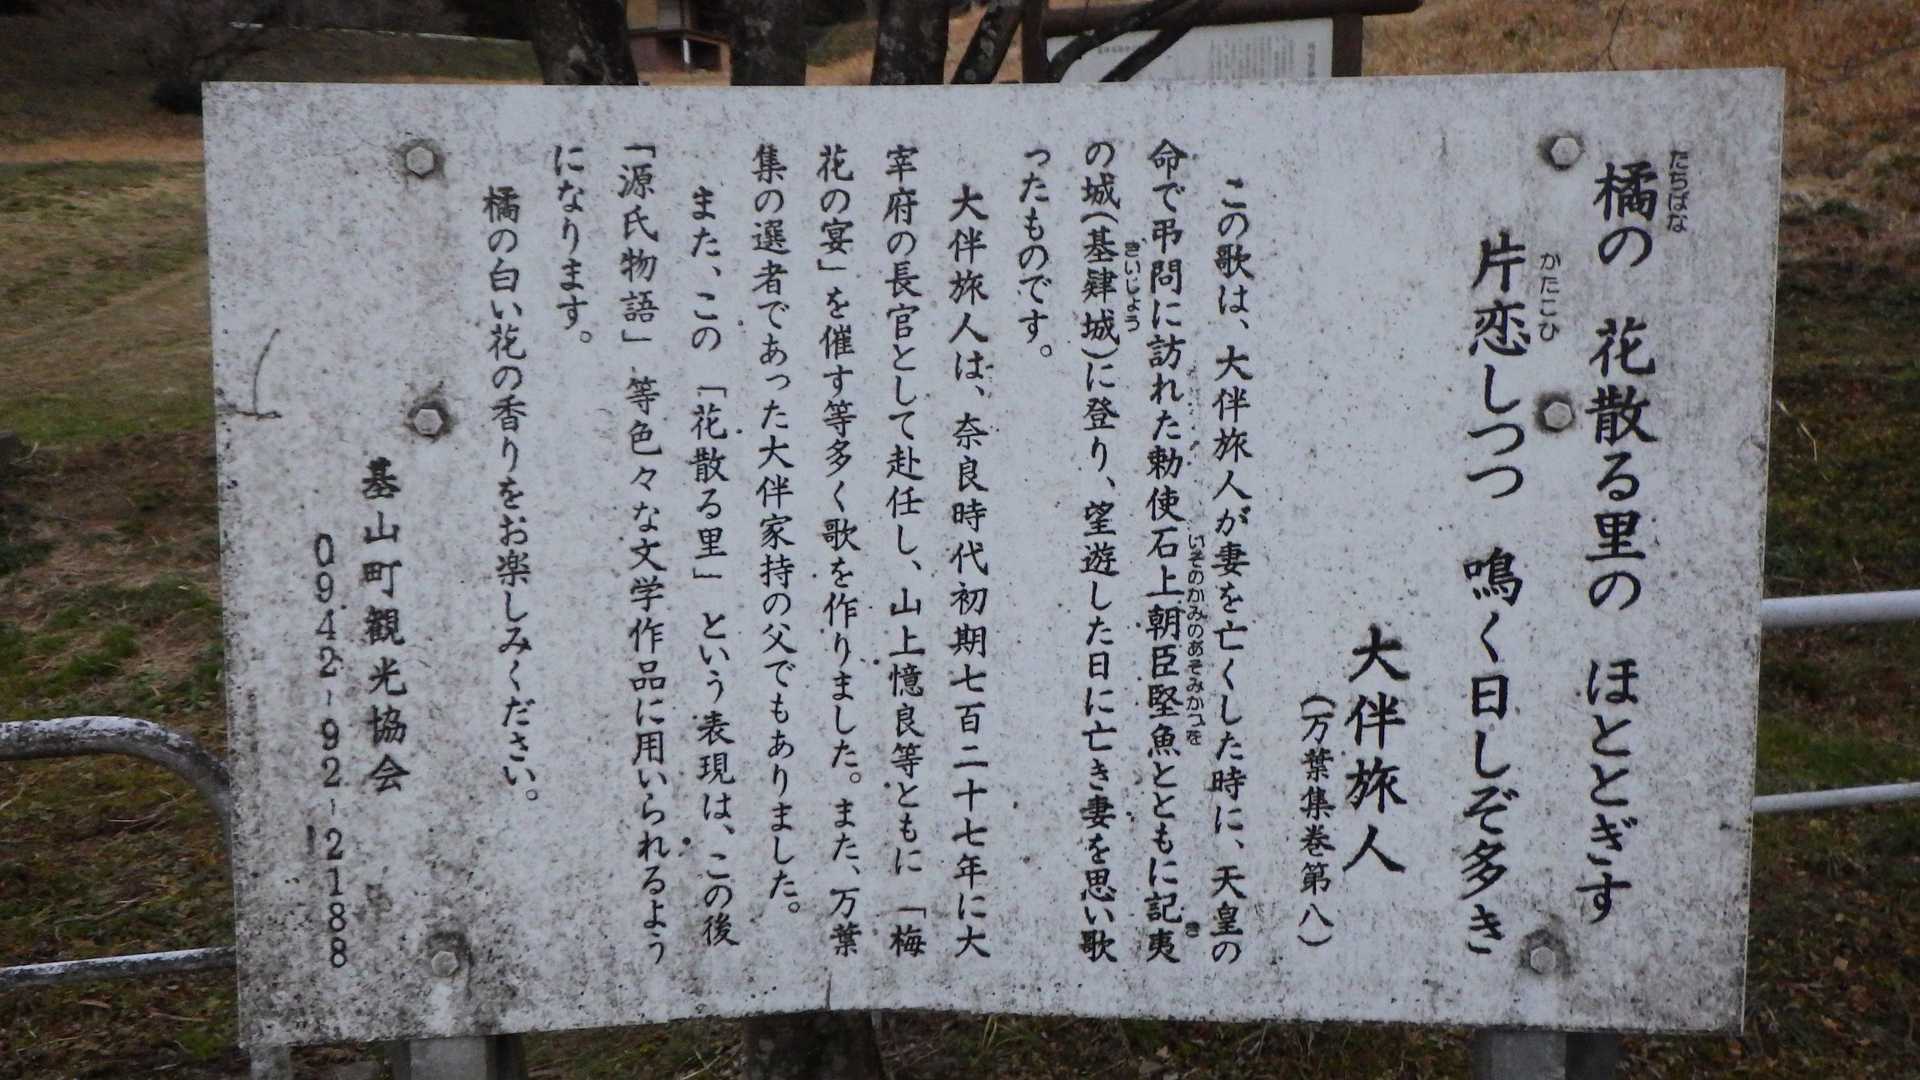 橘の　花散る里の　ほととぎす
たちばな
片恋しつつ　鳴く日しぞ多き
かたこひ
大伴旅人
(万葉集巻第八)
この歌は、大伴旅人が妻を亡くした時に、天皇の
命で弔問に訪れた勅使石上朝臣堅魚とともに記夷
いそのかみのあそみかつを
き
の城(基肄城)に登り、望遊した日に亡き妻を思い歌
きいじょう
ったものです。
大伴旅人は、奈良時代初期七百二十七年に大
宰府の長官として赴任し、山上憶良等とともに「梅
花の宴」を催す等多く歌を作りました。また、万葉
集の選者であった大伴家持の父でもありました。
また、この「花散る里」という表現は、この後
「源氏物語」等色々な文学作品に用いられるよう
になります。
橘の白い花の香りをお楽しみください。
基山町観光協会
0942-92-2188